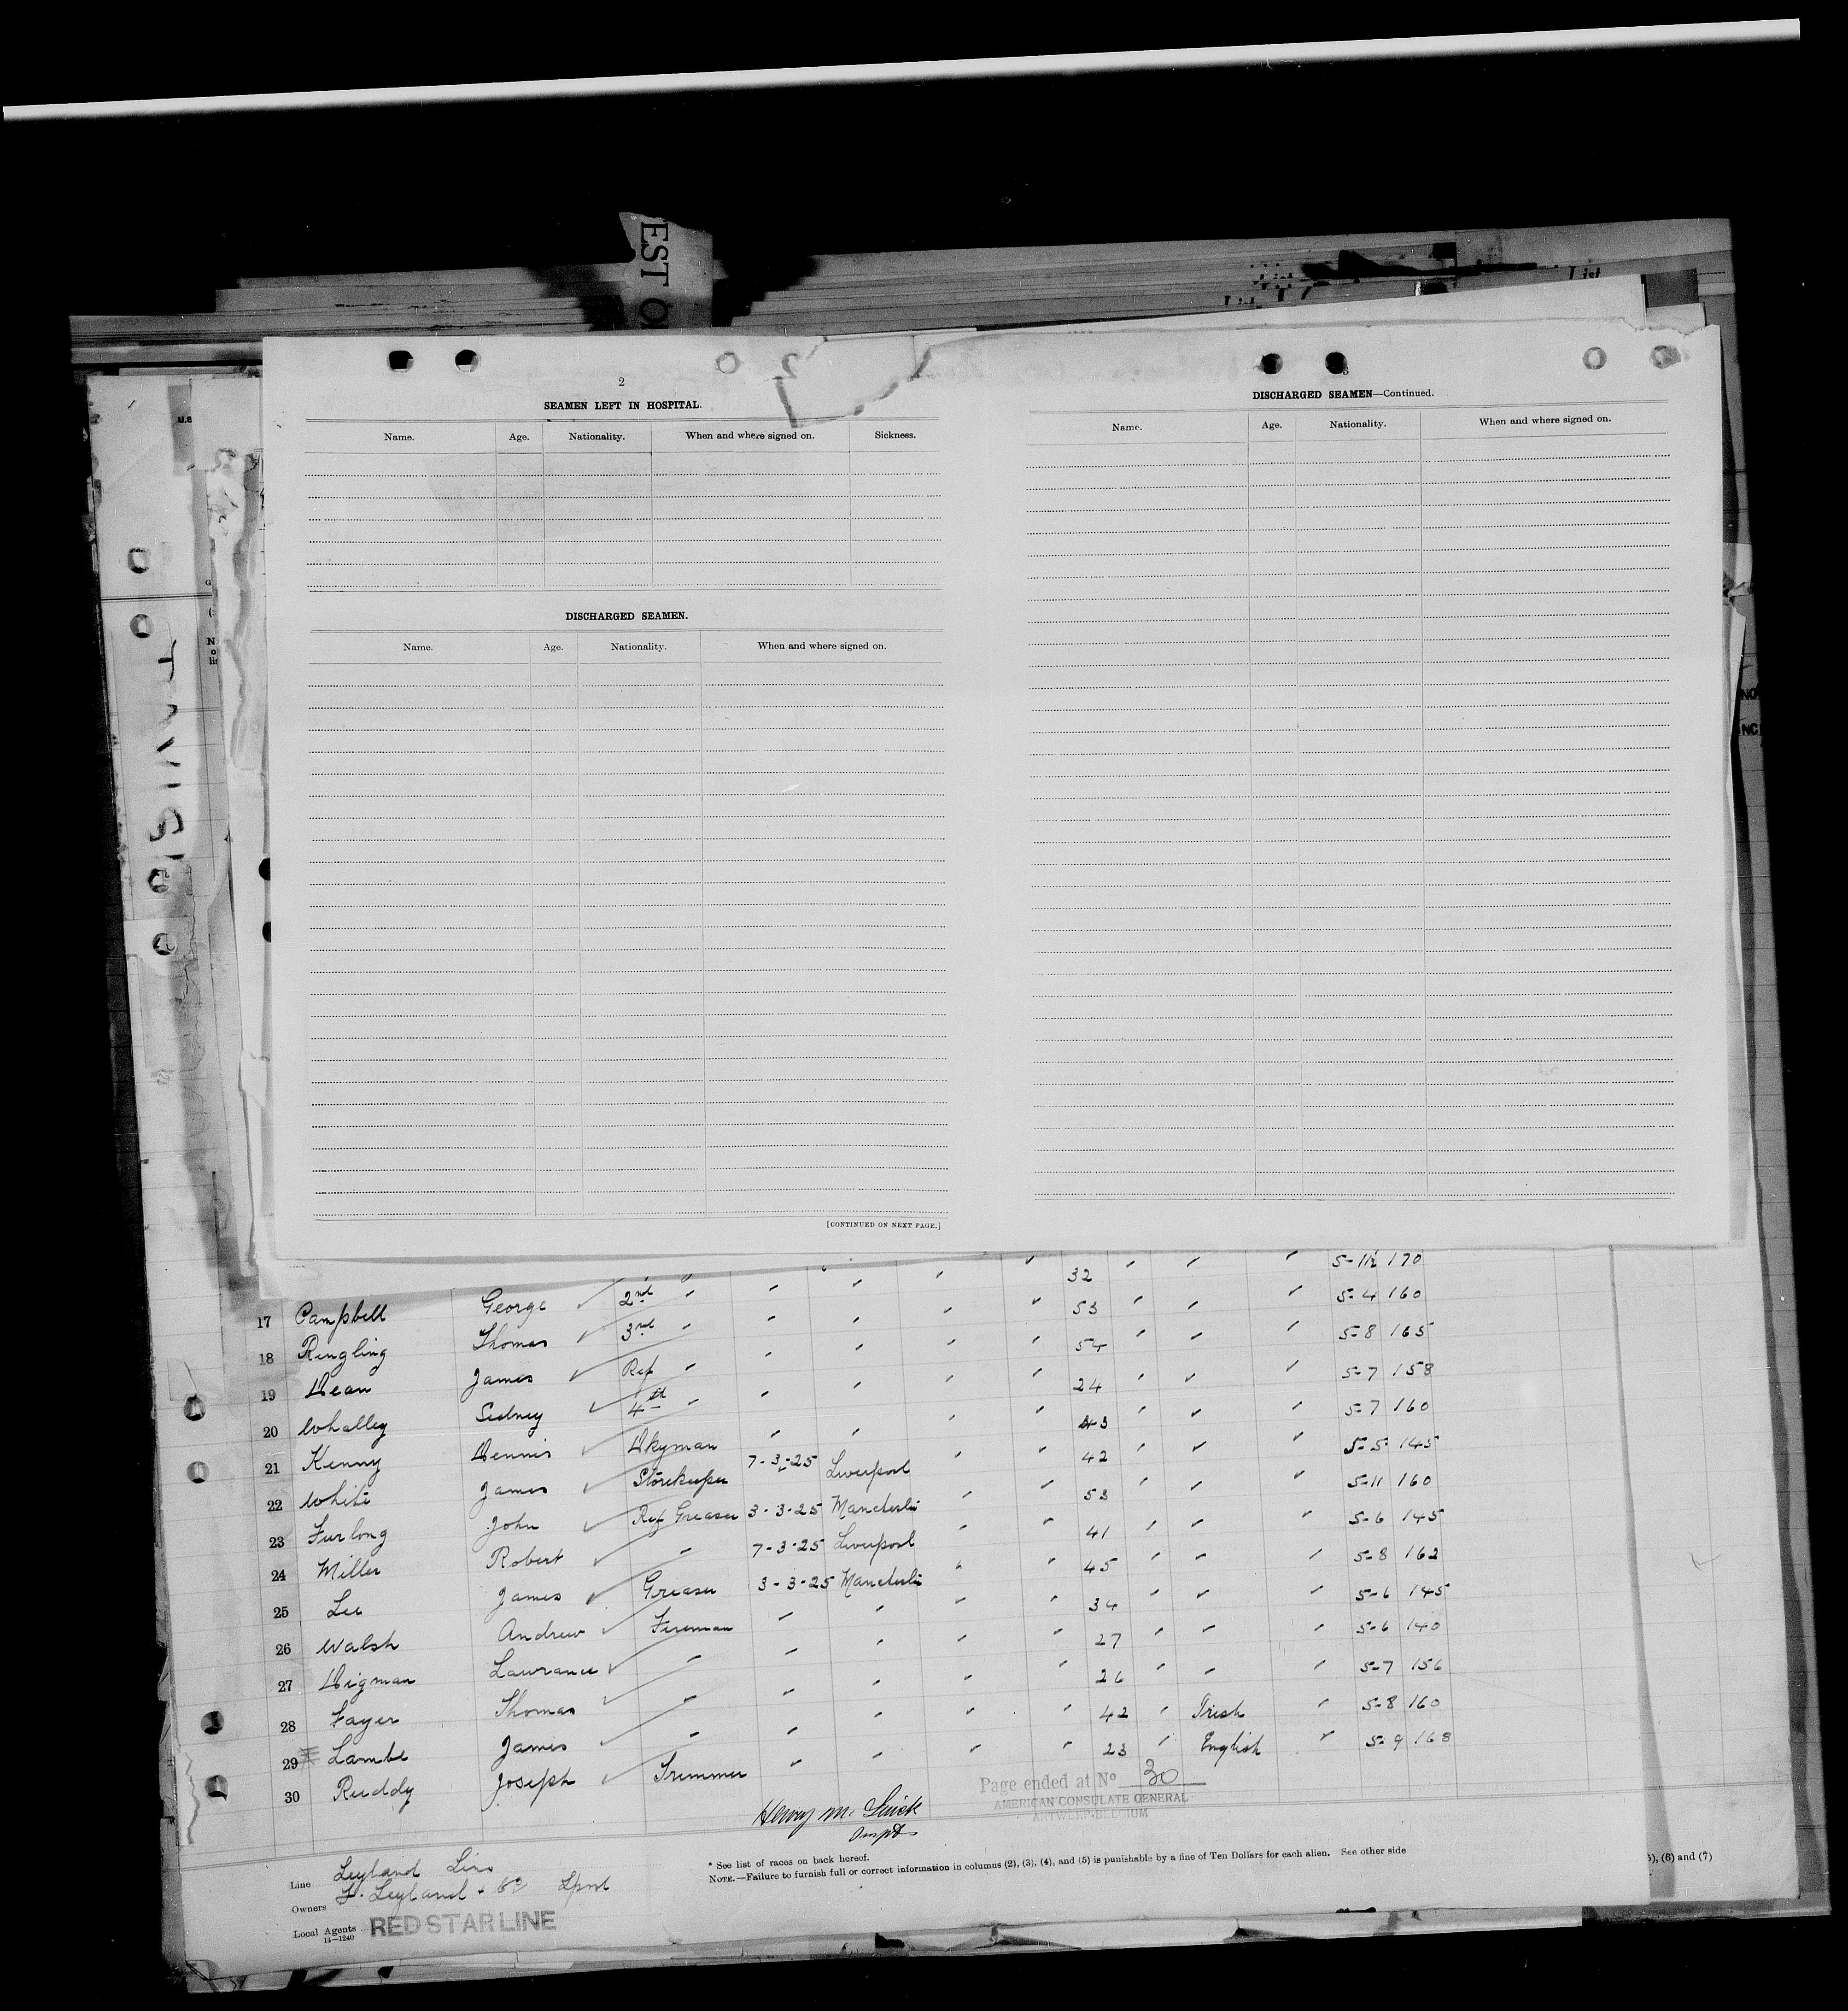 EST O
List
List
List
U.S
2
SEAMEN LEFT IN HOSPITAL.
Name. Age. Nationality. When and where signed on. Sickness.
DISCHARGED SEAMEN.
Name. Age. Nationality. When and where signed on.
[CONTINUED ON NEXT PAGE.]
3
DISCHARGED SEAMEN—Continued.
Name. Age. Nationality. When and where signed on.
5-11½ 170
17 Campbell George ✓ 2nd " 32 5-4 160
18 Ringling Thomas ✓ 3rd " 53 5-8 165
19 Dean James ✓ Ref " 54 5-7 158
20 Whalley Sidney ✓ 4th " 24 5-7 160
21 Kenny Dennis ✓ Dkyman 43 5-5 145
22 White James ✓ Storekeeper 7-3-25 Liverpool 42 5-11 160
23 Furlong John ✓ Ref Greaser 3-3-25 Manchester 53 5-6 145
24 Miller Robert ✓ " 7-3-25 Liverpool 41 5-8 162
25 Lee James ✓ Greaser 3-3-25 Manchester 45 5-6 145
26 Walsh Andrew ✓ Fireman 34 5-6 140
27 Digman Lawrance ✓ " 27 5-7 156
28 Fayer Thomas ✓ " 26 5-8 160
29 Lambe James ✓ " 42 Irish
30 Ruddy Joseph ✓ Trimmer 23 English 5-9 168
Page ended at No 30
AMERICAN CONSULATE GENERAL
ANTWERP-BELGIUM
Henry M. Quick
Line Leyland Line
Owners F. Leyland & Co Lpool
Local Agents RED STAR LINE
14—1240
* See list of races on back hereof.
NOTE.—Failure to furnish full or correct information in columns (2), (3), (4), and (5) is punishable by a fine of Ten Dollars for each alien. See other side
), (6) and (7)